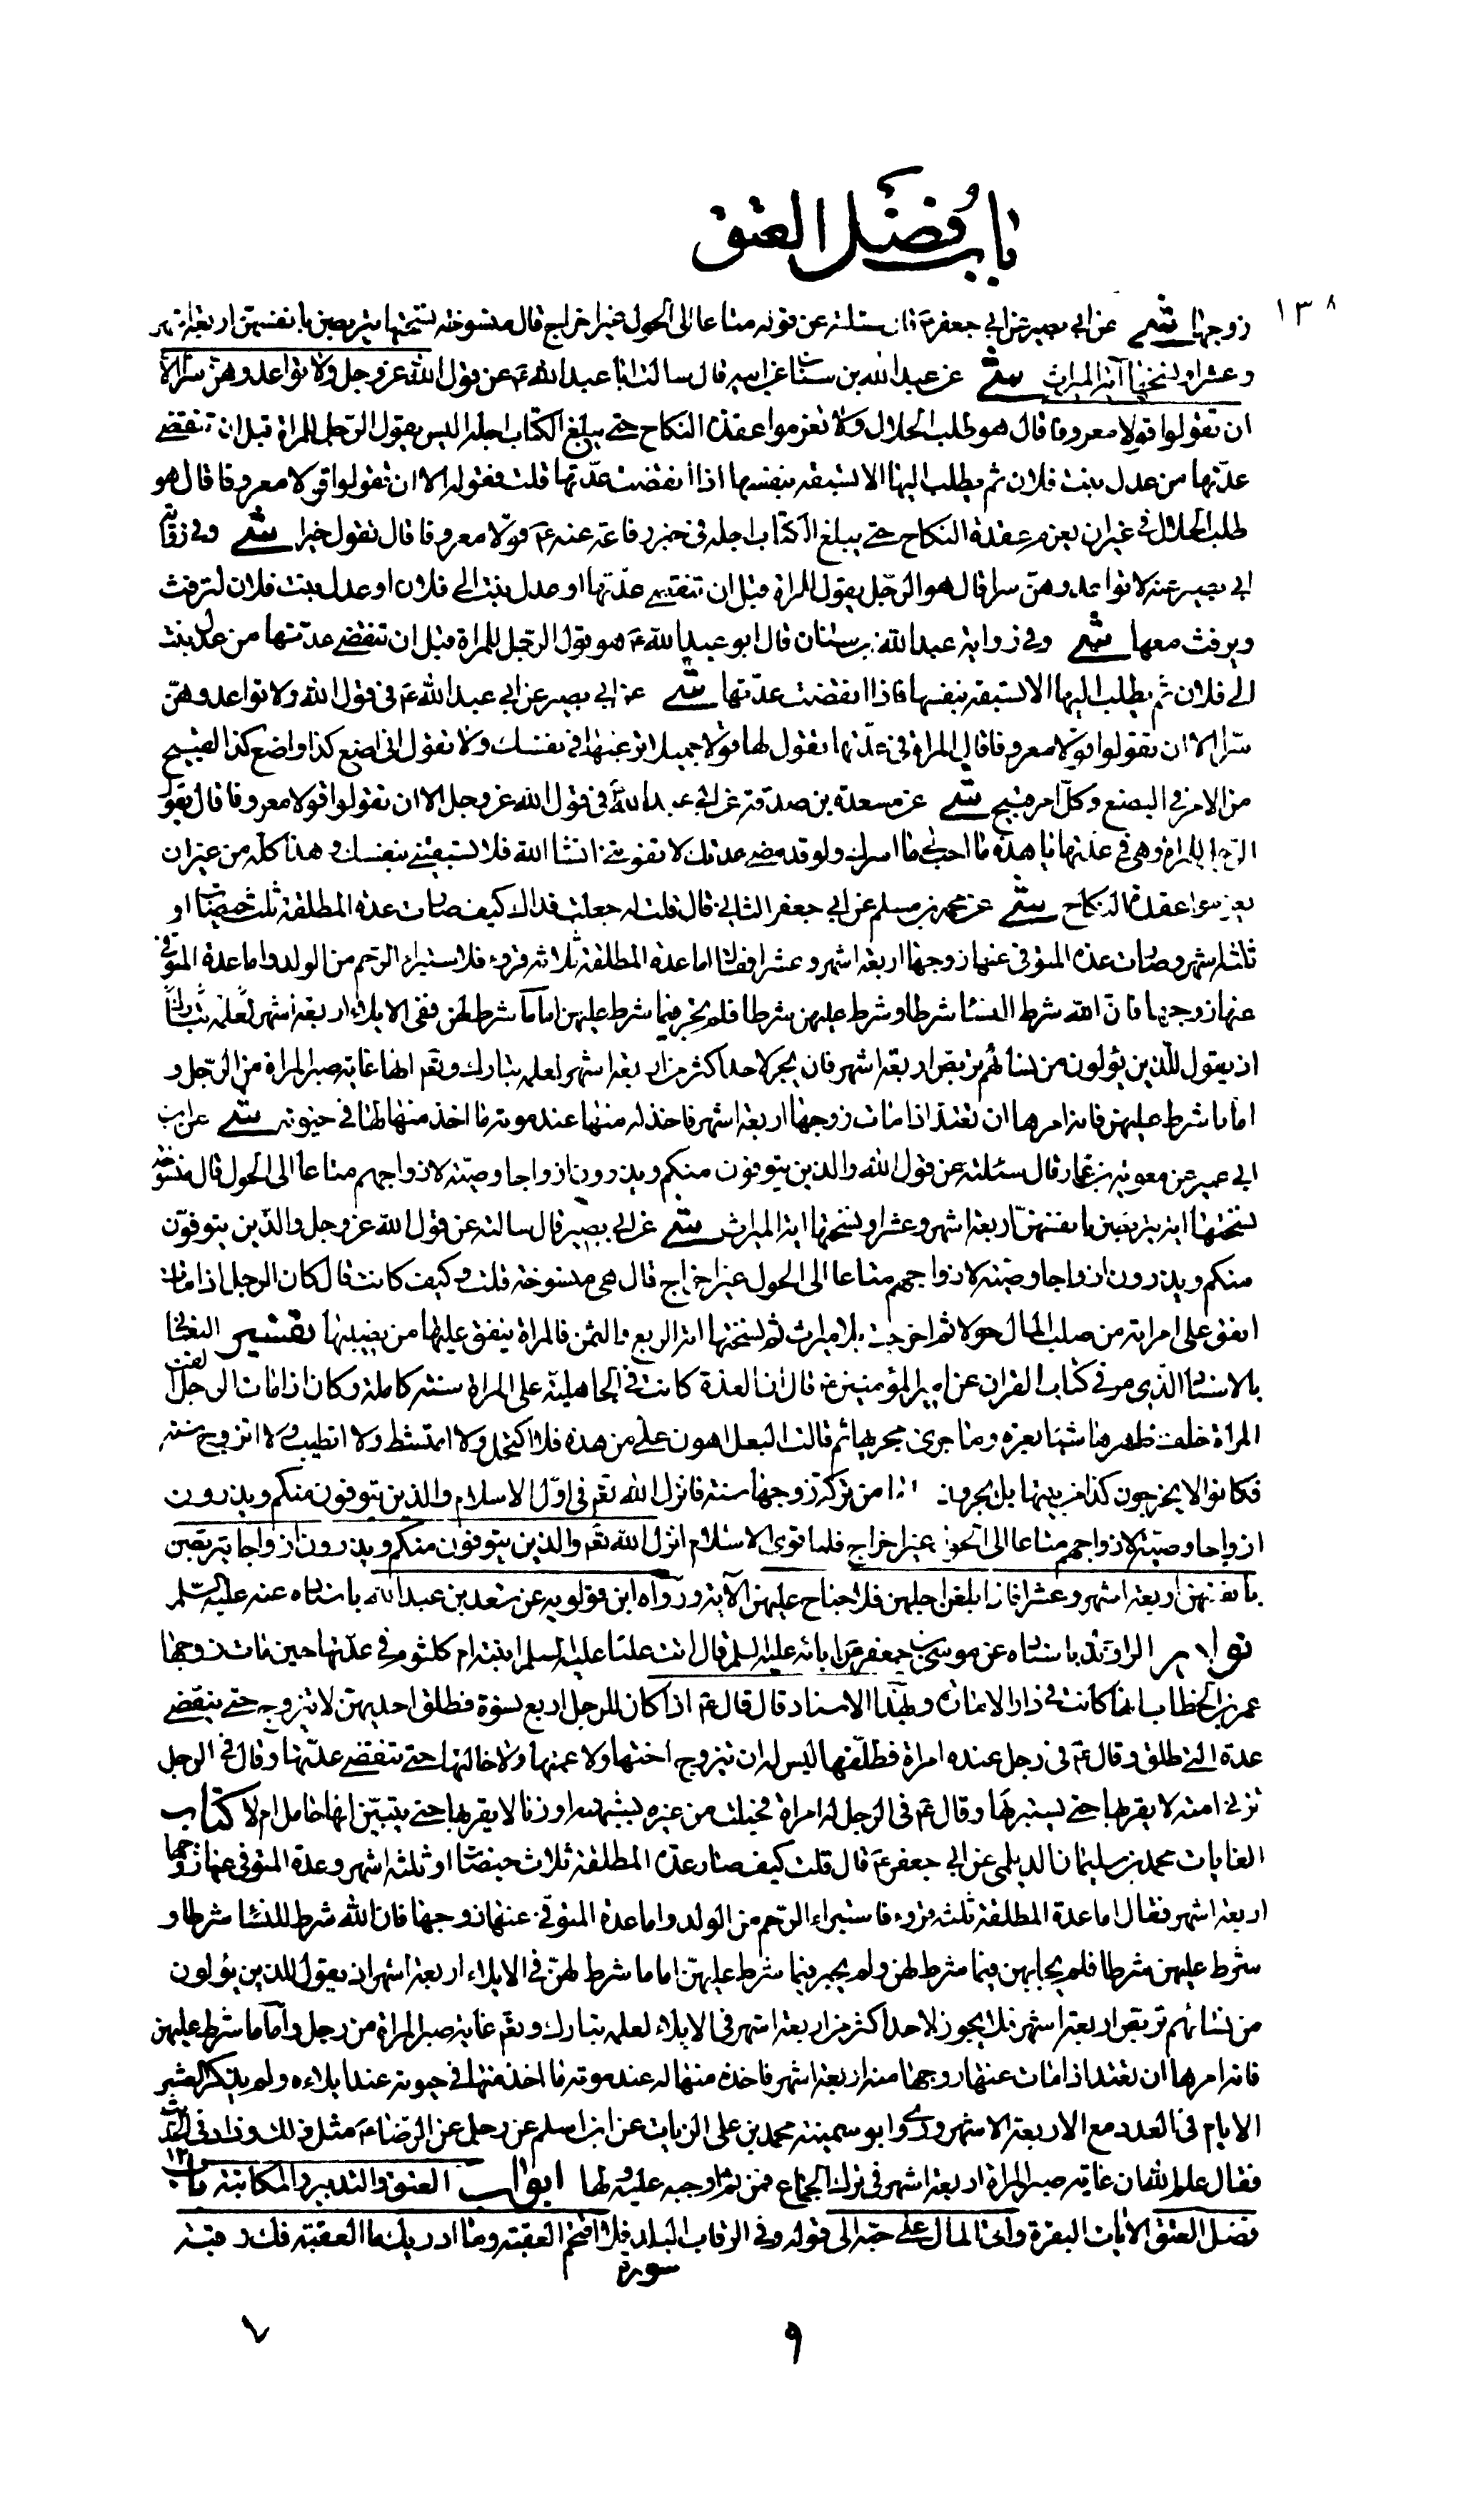 باب فضل العتق
١٣٨
زوجها شى عن ابي بصير عن ابي جعفر ع قال سئلته عن قوله متاعا الى الحول غير اخراج قال منسوخة نسختها يتربصن بانفسهن اربعة اشهر
وعشرا ونسختها آية الميراث شى عن عبد الله بن سنان عن ابيه قال سالت ابا عبد الله ع عن قول الله عز وجل ولا تواعدوهن سرا الا
ان تقولوا قولا معروفا قال هو طلب الحلال ولا تعزموا عقدة النكاح حتى يبلغ الكتاب اجله اليس يقول الرجل للمراة قبل ان تنقضى
عدتها موعدك بيت فلان ثم يطلب اليها الا تسبقه بنفسها اذا انقضت عدتها قلت فقوله الا ان تقولوا قولا معروفا قال هو
طلب الحلال فى غير ان يعزم عقدة النكاح حتى يبلغ الكتاب اجله فى خبر رفاعة عنه ع قولا معروفا قال تقول خيرا شى وفى رواية
ابي بصير عنه لا تواعدوهن سرا قال هو الرجل يقول للمراة قبل ان تنقضى عدتها اوعدك بيت ال فلان اوعدك بيت فلان لترفث
ويرفث معها شى وفى رواية عبد الله بن سنان قال ابو عبد الله ع هو قول الرجل للمراة قبل ان تنقضى عدتها موعدك بيت
ال فلان ثم يطلب اليها الا تسبقه بنفسها فاذا انقضت عدتها شى عن ابي بصير عن ابي عبد الله ع فى قول الله ولا تواعدوهن
سرا الا ان تقولوا قولا معروفا قال المراة فى عدتها تقول لها قولا جميلا ترغبها فى نفسك ولا تقول انى اصنع كذا واصنع كذا القبيح
من الامر فى البضع وكل امر قبيح شى عن مسعدة بن صدقة عن ابي عبد الله ع فى قول الله عز وجل الا ان تقولوا قولا معروفا قال يقول
الرجل للمراة وهى فى عدتها يا هذه ما احب الى ما اسرك ولو قد مضى عدتك لا تفوتينى انشا الله فلا تسبقينى بنفسك وهذا كله من غير ان
يعزموا عقدة النكاح شى عن محمد بن مسلم عن ابي جعفر الثاني قال قلت له جعلت فداك كيف صارت عدة المطلقة ثلث حيضات او
ثلثة اشهر وصارت عدة المتوفى عنها زوجها اربعة اشهر وعشرا فقال اما عدة المطلقة ثلاثة قروء فلاستبراء الرحم من الولد واما عدة المتوفى
عنها زوجها فان الله شرط للنسا شرطا وشرط عليهن شرطا فلم يجر فيما شرط عليهن اما ما شرط لهن ففى الايلاء اربعة اشهر لعلمه تبارك
اذ يقول للذين يؤلون من نسائهم تربص اربعة اشهر فلن يجز لاحد اكثر من اربعة اشهر لعلمه تبارك وتعالى انها غاية صبر المراة من الرجل و
اما ما شرط عليهن فانه امرها ان تعتد اذا مات زوجها اربعة اشهر فاخذ له منها عند موته ما اخذ منها لها فى حيوته شى عن ابن
ابي عمير عن معوية بن عمار قال سئلته عن قول الله والذين يتوفون منكم ويذرون ازواجا وصية لازواجهم متاعا الى الحول قال منسوخة
نسختها اية يتربصن بانفسهن اربعة اشهر وعشرا ونسختها اية الميراث شى عن ابي بصير قال سالته عن قول الله عز وجل والذين يتوفون
منكم ويذرون ازواجا وصية لازواجهم متاعا الى الحول غير اخراج قال هى منسوخة قلت وكيف كانت قال كان الرجل اذا مات
انفق على امراته من صلب المال حولا ثم اخرجت بلا ميراث ثم نسختها اية الربع والثمن فالمراة ينفق عليها من نصيبها تفسير النعماني
بالاسناد الذى مر فى كتاب القران عن امير المؤمنين ع قال ان العدة كانت فى الجاهلية على المراة سنة كاملة وكان اذا مات الرجل القت
المراة خلف ظهرها شيئا بعرة وما جرى مجريها ثم قالت البعل اهون على من هذه فلا اكتحل ولا امتشط ولا اتطيب ولا اتزوج سنة
فكانوا لا يخرجونها من بيتها بل يجرون من تركة زوجها سنة فانزل الله تعم فى اول الاسلام والذين يتوفون منكم ويذرون
ازواجا وصية لازواجهم متاعا الى الحول غير اخراج فلما قوى الاسلام انزل الله تعم والذين يتوفون منكم ويذرون ازواجا يتربصن
بانفسهن اربعة اشهر وعشرا فاذا بلغن اجلهن فلا جناح عليهن الآية ورواه ابن قولويه عن سعد بن عبد الله باسناده عنه عليه السلم
نوادر الراوندى باسناده عن موسى بن جعفر عن ابائه عليه السلم قال اتت عليا عليه السلم ابنته ام كلثوم فى عدتها حين مات زوجها
عمر بن الخطاب لانها كانت فى دار الامارة وبهذا الاسناد قال قال ع اذا كان للرجل اربع نسوة فطلق احديهن لا يتزوج حتى ينقضى
عدة التى طلق وقال ع فى رجل عنده امراة فطلقها ليس له ان يتزوج اختها ولا عمتها ولا خالتها حتى تنقضى عدتها وقال فى الرجل
تزنى امته لا يقربها حتى يستبرئها وقال ع فى الرجل له امراة فحبلت من غيره بشبهة او زنا لا يقربها حتى يتبين انها حامل ام لا كتاب
الغايات محمد بن سليمان الديلمى عن ابي جعفر ع قال قلت كيف صار عدة المطلقة ثلاث حيض او ثلثة اشهر وعدة المتوفى عنها زوجها
اربعة اشهر فقال اما عدة المطلقة ثلثة قروء فاستبراء الرحم من الولد واما عدة المتوفى عنها زوجها فان الله شرط للنسا شرطا و
شرط عليهن شرطا فلم يحابهن فيما شرط لهن ولم يجر فيما شرط عليهن اما ما شرط لهن فى الايلاء اربعة اشهر ان يقول للذين يؤلون
من نسائهم تربص اربعة اشهر فلا يجوز لاحد اكثر من اربعة اشهر فى الايلاء لعلمه تبارك وتعم غاية صبر المراة من رجل واما ما شرط عليهن
فانه امرها ان تعتد اذا مات عنها زوجها منه اربعة اشهر فاخذه منها له عند موته ما اخذ منها فى حيوته عند ايلاءه ولم يذكر العشر
الايام فى العدد مع الاربعة الاشهر وروى ابو سمينة محمد بن على الزيات عن ابن اسلم عن رجل عن الرضا ع مثل ذلك وزاد فى الحديث
فقال علم الله ان غاية صبر المراة اربعة اشهر فى ترك الجماع فمن ثم اوجبه عليه ولها ابواب العتق والتدبير والمكاتبة باب
فضل العتق الايات البقرة واتى المال على حبه الى قوله وفى الرقاب البلد فلا اقتحم العقبة وما ادريك ما العقبة فك رقبة
سورة
٩